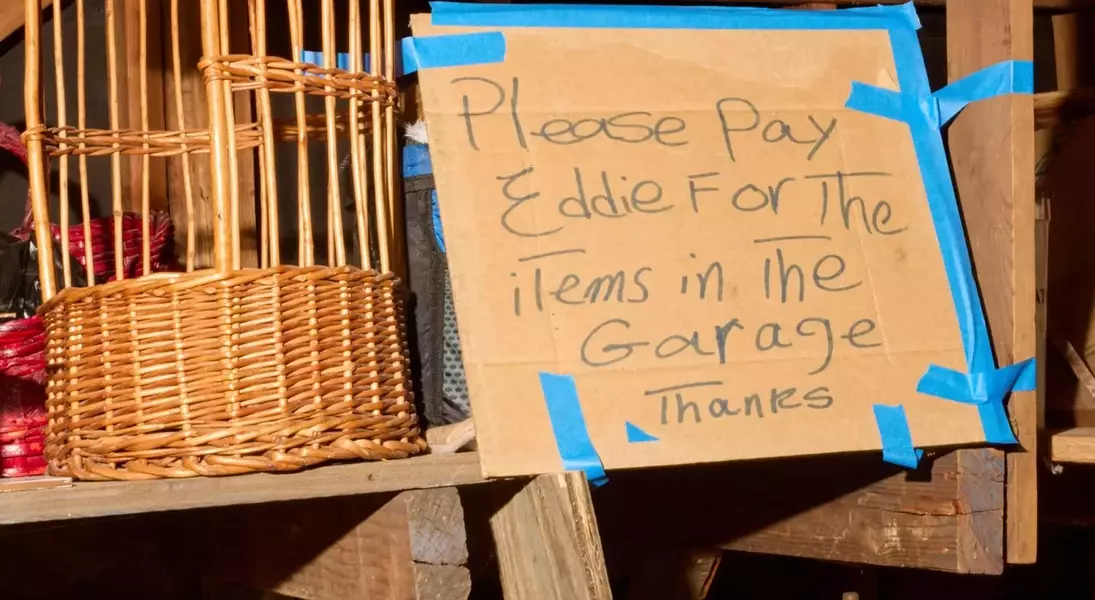 Please Pay
Eddie For The
iTems in The
Garage
Thanks